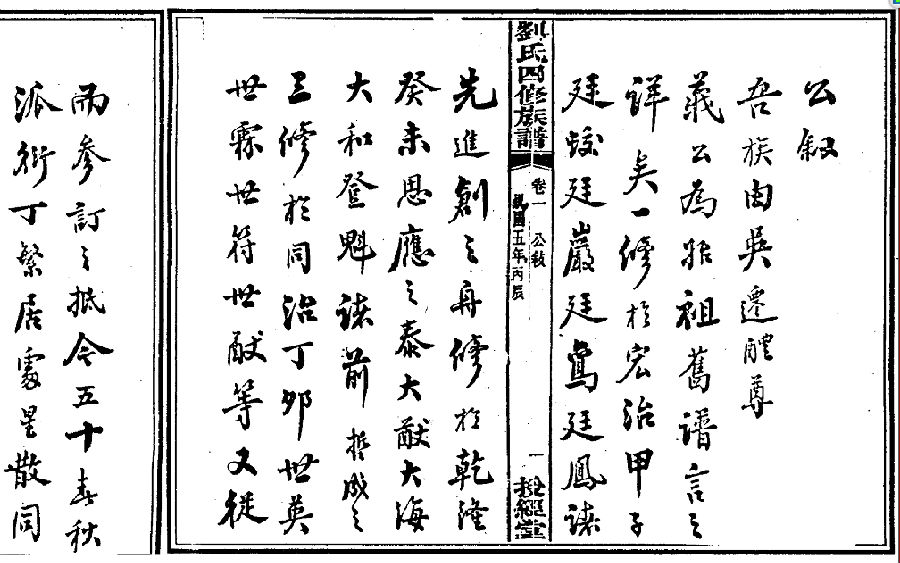 公叙
吾族由吳遷醴尊
義公為始祖舊譜言之
詳矣一修於宏治甲子
廷蛟廷巖廷鸞廷鳳諸
劉氏四修族譜
卷一 公敘
民國五年丙辰
一
授經堂
先進創之再修於乾隆
癸未恩應之泰大猷大海
大和登魁諸前哲成之
三修於同治丁卯世英
世霖世符世猷等又從
而參訂之抵今五十春秋
派衍丁繁居處星散同